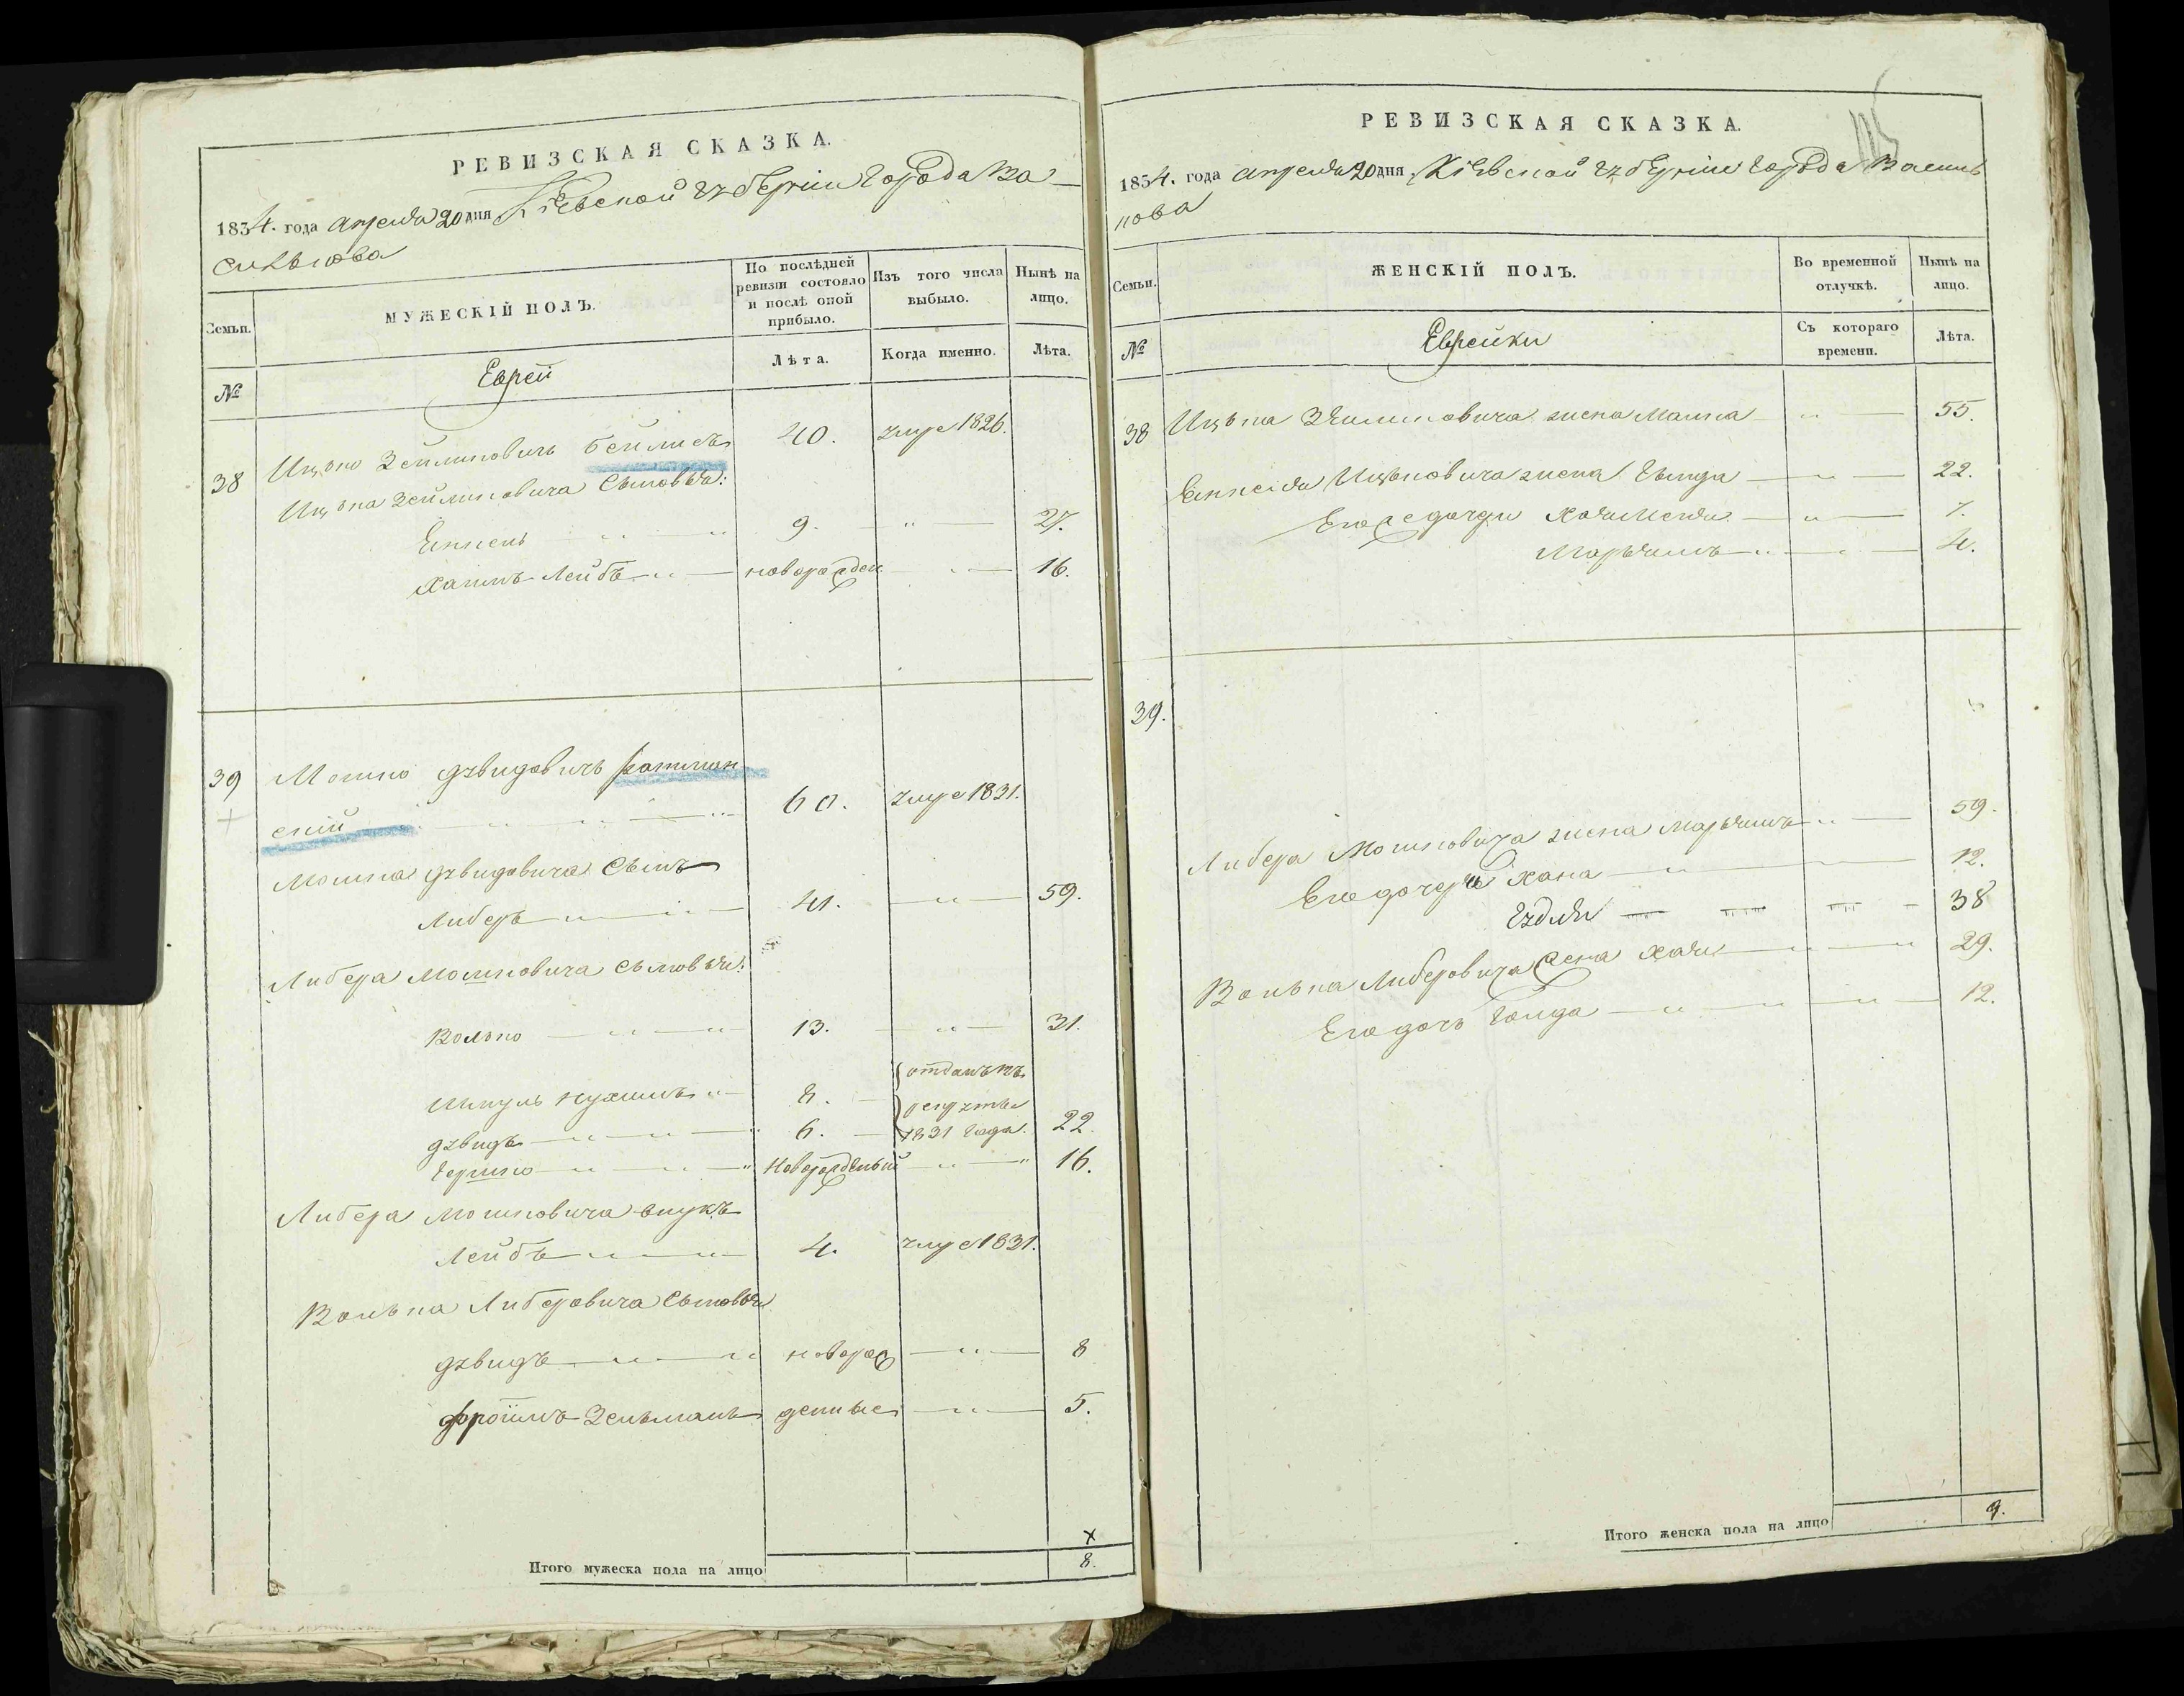 РЕВИЗСКАЯ СКАЗКА.
1834. года апреля 20 дня Кіевской губерніи города Ва-
силькова
Семьи.
МУЖЕСКІЙ ПОЛЪ.
По послѣдней ревизіи состояло и послѣ оной прибыло.
Изъ того числа выбыло.
Нынѣ на лицо.
№
Еврей
Лѣта.
Когда именно.
Лѣта.
38 Ицько Зейликовичь Бейлисъ 40. умре 1826.
Ицька Зейликовича сыновья:
9. " 27.
Хаимъ Лейбъ " новорожден " 16.
39 Мошко Дувидовичъ
скій " " " 60. умре 1831.
Мошка Дувидовича сынъ
Либеръ " " 41. " 59.
Либера Мошковича сыновья:
Волько " " 13. " 31.
Шмуль Нухимъ " 8. отданъ въ
рекруты
Дувидъ " " " 6. 1831 года. 22.
Гершко " " " новорожденный " " 16.
Либера Мошковича внукъ
Лейбъ " " 4. умре 1831.
Волька Либеровича сыновья
Дувидъ " " новорож " 8
Фроимъ Зельманъ денные " 5.
Итого мужеска пола на лицо 8.
РЕВИЗСКАЯ СКАЗКА.
1834. года апреля 20 дня Кіевской губерніи города Василь
кова
Семьи.
ЖЕНСКІЙ ПОЛЪ.
Во временной отлучкѣ.
Нынѣ на лицо.
№
Еврейки
Съ котораго времени.
Лѣта.
38 Ицька Зейликовича жена Малка " 55.
Ицьковича жена " 22.
Его дочери " 7.
Марьямъ " " 4.
39.
Либера Мошковича жена Марьямъ " 59.
Его дочери Хана " 12.
38
Волька Либеровича жена Хая " " 29.
Его дочь Голда " " " 12.
Итого женска пола на лицо 9.